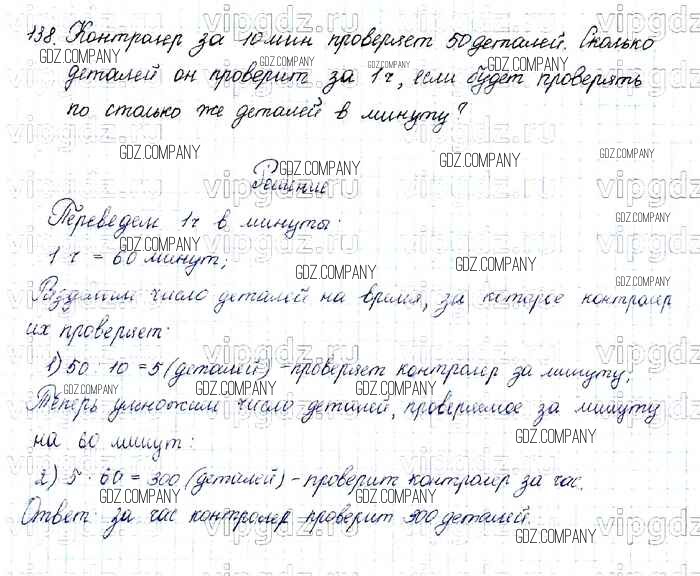 138. Контролер за 10 мин проверяет 50 деталей. Сколько
деталей он проверит за 1 ч, если будет проверять
по столько же деталей в минуту?
Решение
Переведем 1 ч в минуты:
1 ч = 60 минут;
Разделим число деталей на время, за которое контролер
их проверяет:
1) 50 : 10 = 5 (деталей) - проверяет контролер за минуту;
Теперь умножим число деталей, проверяемое за минуту
на 60 минут:
2) 5 · 60 = 300 (деталей) - проверит контролер за час.
Ответ: за час контролер проверит 300 деталей.
vipgdz.ru
GDZ.COMPANY